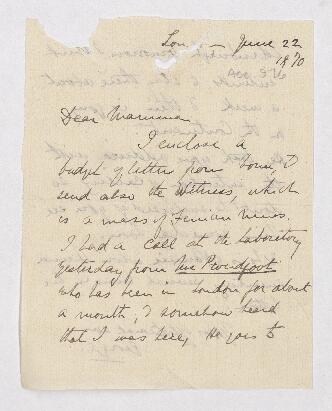 Lon – June 22
1870
Acc 876
Dear Mamma
I enclose a
budget of letters from home, I
send also the Witness, which
is a mass of Fenian news.
I had a call at the Laboratory
yesterday from Proudfoot
who has been in London for about
a month, & somehow heard
that I was here, He goes to